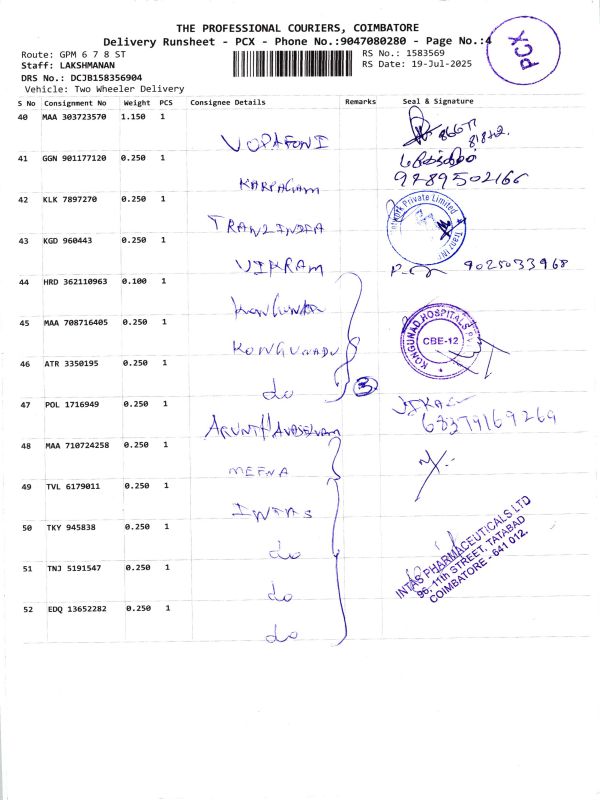 THE PROFESSIONAL COURIERS, COIMBATORE
Delivery Runsheet - PCX - Phone No.:9047080280 - Page No.:4
PCX
Route: GPM 6 7 8 ST
RS No.: 1583569
Staff: LAKSHMANAN
RS Date: 19-Jul-2025
DRS No.: DCJB158356904
Vehicle: Two Wheeler Delivery
S No Consignment No Weight PCS Consignee Details Remarks Seal & Signature
40 MAA 303723570 1.150 1
VODAFONE
41 GGN 901177120 0.250 1
KARPAGAM
9789502166
42 KLK 7897270 0.250 1
TRANZINDIA
Network Private Limited
43 KGD 960443 0.250 1
VIKRAM
9025033968
44 HRD 362110963 0.100 1
45 MAA 708716405 0.250 1
KONGUNADU
KONGUNAD HOSPITALS
CBE-12
46 ATR 3350195 0.250 1
do
3
47 POL 1716949 0.250 1
48 MAA 710724258 0.250 1
MEENA
49 TVL 6179011 0.250 1
INTAS
50 TKY 945838 0.250 1
do
INTAS PHARMACEUTICALS LTD
96, 11th STREET, TATABAD
COIMBATORE - 641 012.
51 TNJ 5191547 0.250 1
do
52 EDQ 13652282 0.250 1
do